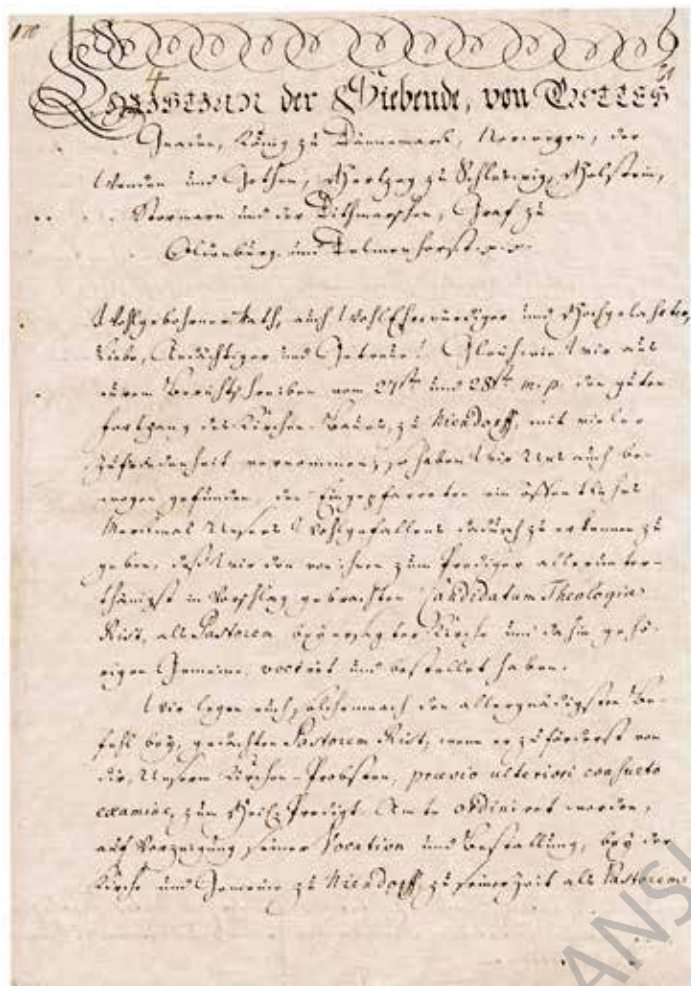 110
4
21
CHRISTIAN der Siebende, von GOTTES
Gnaden, König zu Dännemarck, Norwegen, der
Wenden und Gothen, Hertzog zu Schleswig, Holstein,
Stormarn und der Dithmarschen, Graf zu
Oldenburg und Delmenhorst p. p.
Wohlgebohrner Rath, auch WohlEhrwürdiger und Hochgelahrter,
Liebe, Andächtiger und Getreue! Gleichwie Wir aus
eurem Berichtschreiben vom 27ten und 28ten m. p. den guten
Fortgang des Kirchen-Baues, zu Niendorff, mit vieler
Zufriedenheit vernommen; so haben Wir Uns auch be-
wogen gefunden, den Eingepfarreten ein öffentliches
Merckmal Unsers Wohlgefallens dadurch zu erkennen zu
geben, daß Wir den von ihnen zum Prediger allerunter-
thänigst in Vorschlag gebrachten Candidatum Theologiæ
Rist, als Pastorem bey besagter Kirche und dahin gehö-
rigen Gemeine, vociret und bestellet haben.
Wir legen euch solchemnach den allergnädigsten Be-
fehl bey, gedachten Pastorem Rist, wenn er zuförderst von
dir, Unserm Kirchen-Probsten, prævio ulteriori consueto
examine, zum Heil. Predigt-Amte ordiniret worden,
auf Vorzeigung seiner Vocation und Bestallung, bey der
Kirche und Gemeine zu Niendorff, zu seiner Zeit als Pastorem
ANS